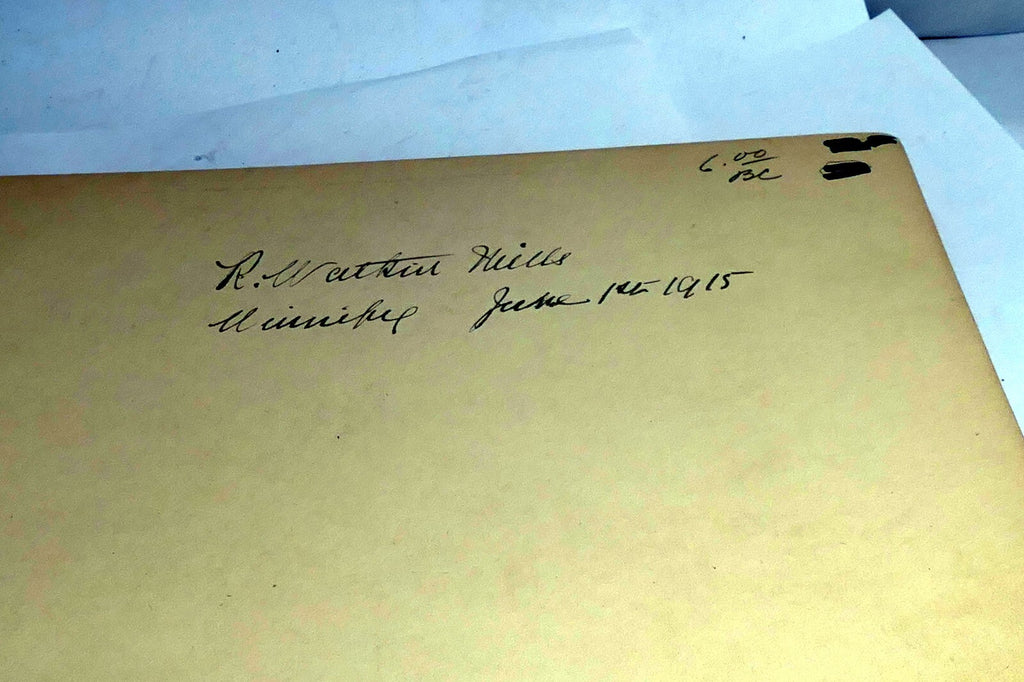 6.00
BC
R. Watkin Mills
Winnipeg June 1st 1915